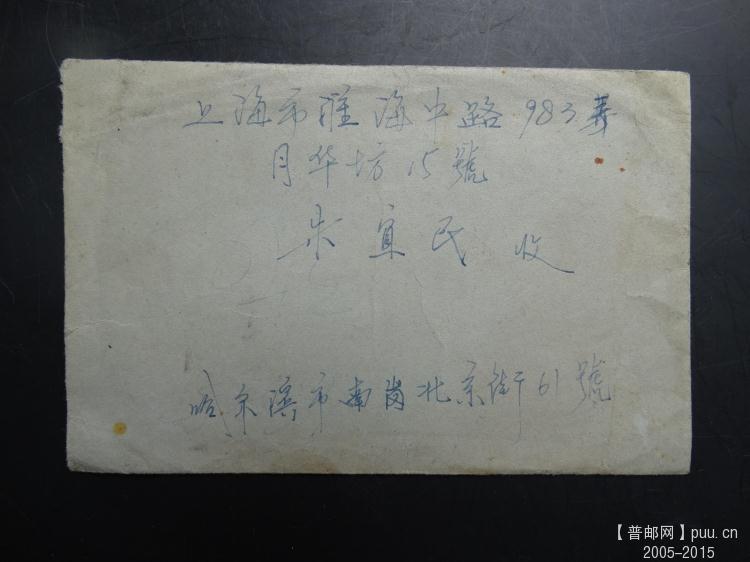 上海市淮海中路983弄
月华坊15號
朱宜民 收
哈尔滨市南崗北京街61號
【普邮网】puu.cn
2005-2015